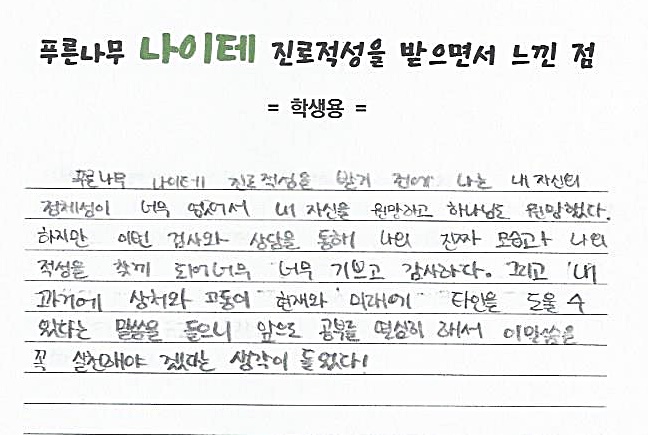 푸른나무 나이테 진로적성을 받으면서 느낀 점
= 학생용 =
푸른나무 나이테 진로적성을 받기 전에 나는 내 자신의
정체성이 너무 없어서 내 자신을 원망하고 하나님도 원망했다.
하지만 이번 검사와 상담을 통해 나의 진짜 모습과 나의
적성을 찾게 되어 너무 너무 기쁘고 감사하다. 그리고 '내
과거에 상처와 고통이 현재와 미래에 타인을 도울 수
있다는 말씀을 들으니 앞으로 공부를 열심히 해서 이말씀을
꼭 실천해야 겠다는 생각이 들었다!